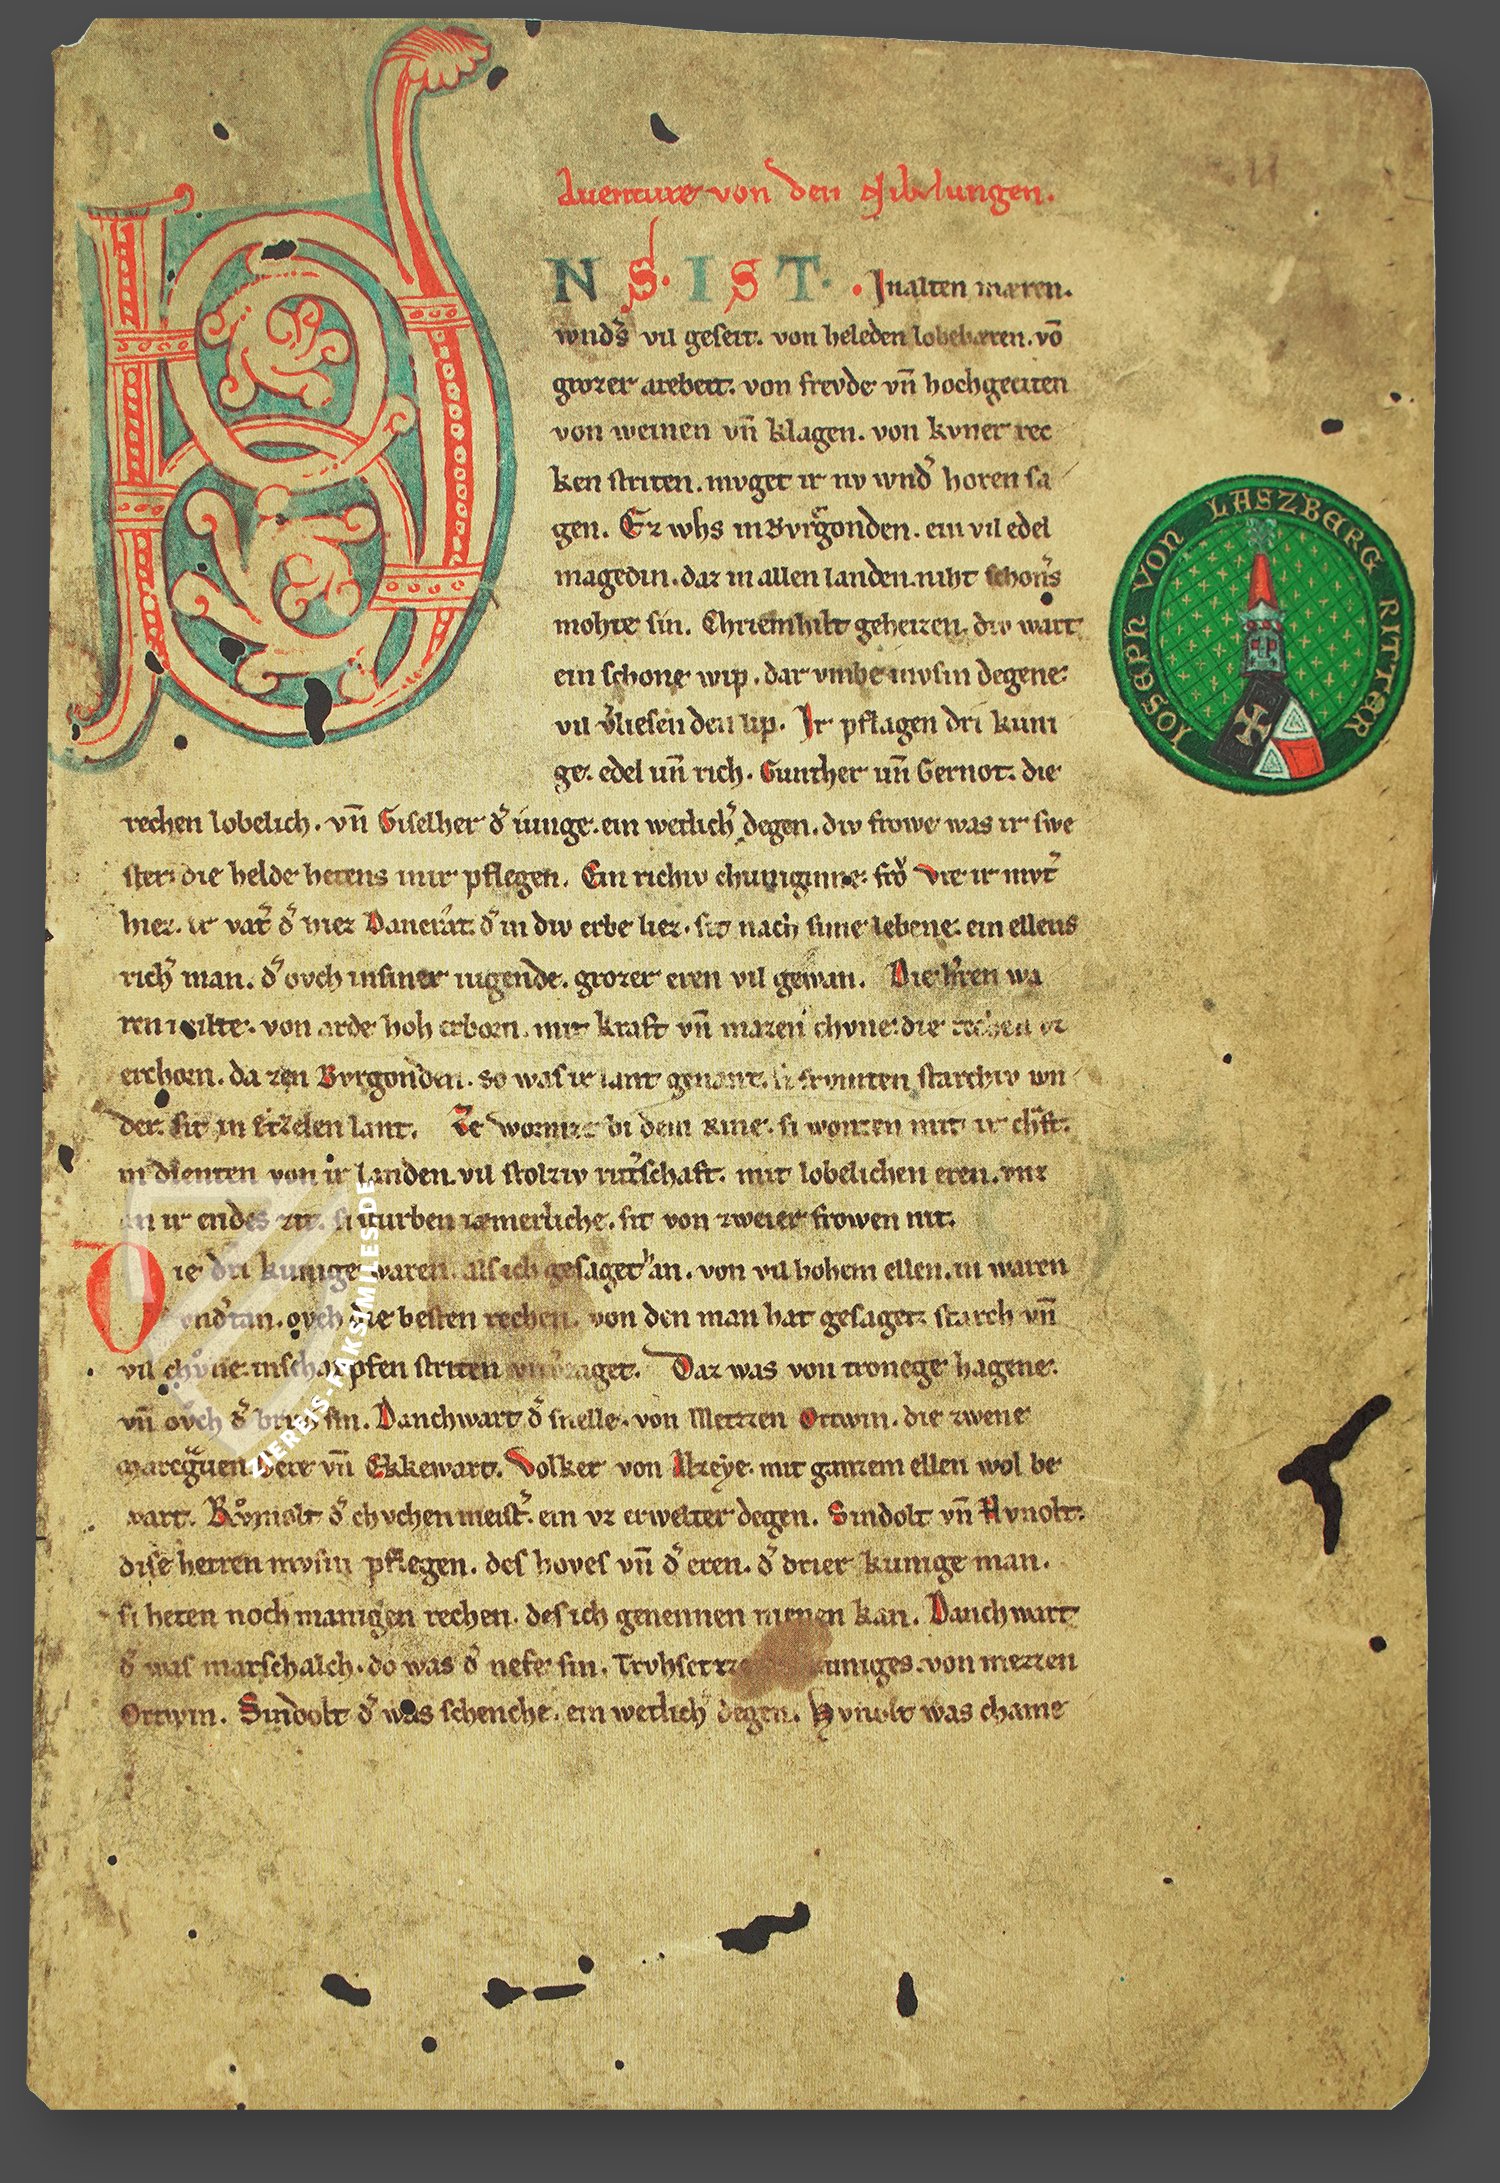 Auenture von den Nibelungen.
U
NS. IST. Inalten mæren.
wnds vil geseit. von heleden lobebæren. võ
grozer arebeit. von frevde vñ hochgeciten
von weinen vñ klagen. von kvner rec
ken striten. mvget ir nv wnd̾ horen sa
gen. Ez whs in Bvrgonden. ein vil edel
magedin. daz in allen landen. niht schon̾s
mohte sin. Chriemhilt geheizen. div wart
ein schone wip. dar vmbe mvsin degene
vil v̾liesen den lip. Ir pflagen dri kuni
ge. edel uñ rich. Gunther uñ Gernot. die
rechen lobelich. vñ Giselher d̾ iunge. ein wetlich̾ degen. div frowe was ir swe
ster. die helde hetens inir pflegen. Ein richiv chuniginne. frŏ Vte ir mvt̾
hiez. ir vat̾ d̾ hiez Dancrat. d̾ in div erbe liez. sit nach sime lebene. ein ellens
rich̾ man. d̾ ovch insiner iugende. grozer eren vil gewan. Die h̾ren wa
ren milte. von arde hoh erborn. mit kraft vñ mazen chvne. die rechen vz
erchorn. da zen Bvrgonden. so was ir lant genant. si frvmten starchiv wn
der. sit in Etzelen lant. Ze wormze bi dem Rine. si wonten mit ir chr̃aft.
in dienten von ir landen. vil stolziv rit̾schaft. mit lobelichen eren. vnz
an ir endes zit. si sturben iæmerliche. sit von zweier frowen nit.
Die dri kunige waren. als ich gesaget han. von vil hohem ellen. in waren
vnd̾tan. ovch die besten rechen. von den man hat gesaget. starch vñ
vil chůne. inscharpfen striten vnv̾zaget. Daz was von tronege hagene.
vñ ovch d̾ brud̾ sin. Danchwart d̾ snelle. von Metzzen Ortwin. die zwene
marcgˢuen. Gere vñ Ekkewart. Volker von Alzeye. mit ganzem ellen wol be
wart. Rvͦmolt d̾ chvchenmeist̾. ein vz erwelter degen. Sindolt vñ Hvnolt.
dise herren mvsin pflegen. des hoves vñ d̾ eren. d̾ drier kunige man.
si heten noch manigen rechen. des ich genennen nienen kan. Danchwart
d̾ was marschalch. do was d̾ nefe sin. Trvhsetze kuniges. von mezzen
Ortwin. Sindolt d̾ was schenche. ein wetlich̾ degen. Hvnolt was chame
IOSEPH VON LASZBERG RITTER
ZIEREIS-FAKSIMILES.DE